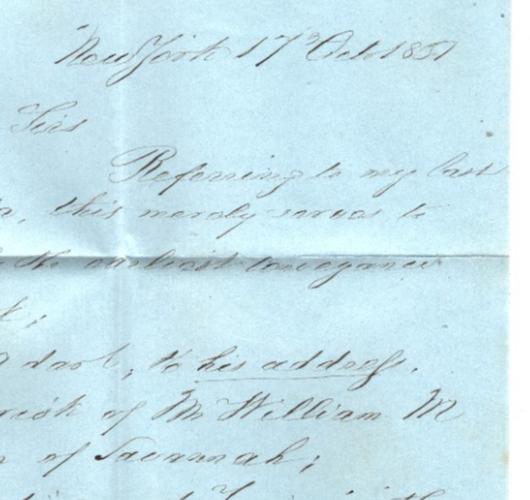 New York 17th Oct 1851
Sirs
Referring to my last
this merely serves to
the earliest conveyance
to his address.
of Mr William M
of Savannah;